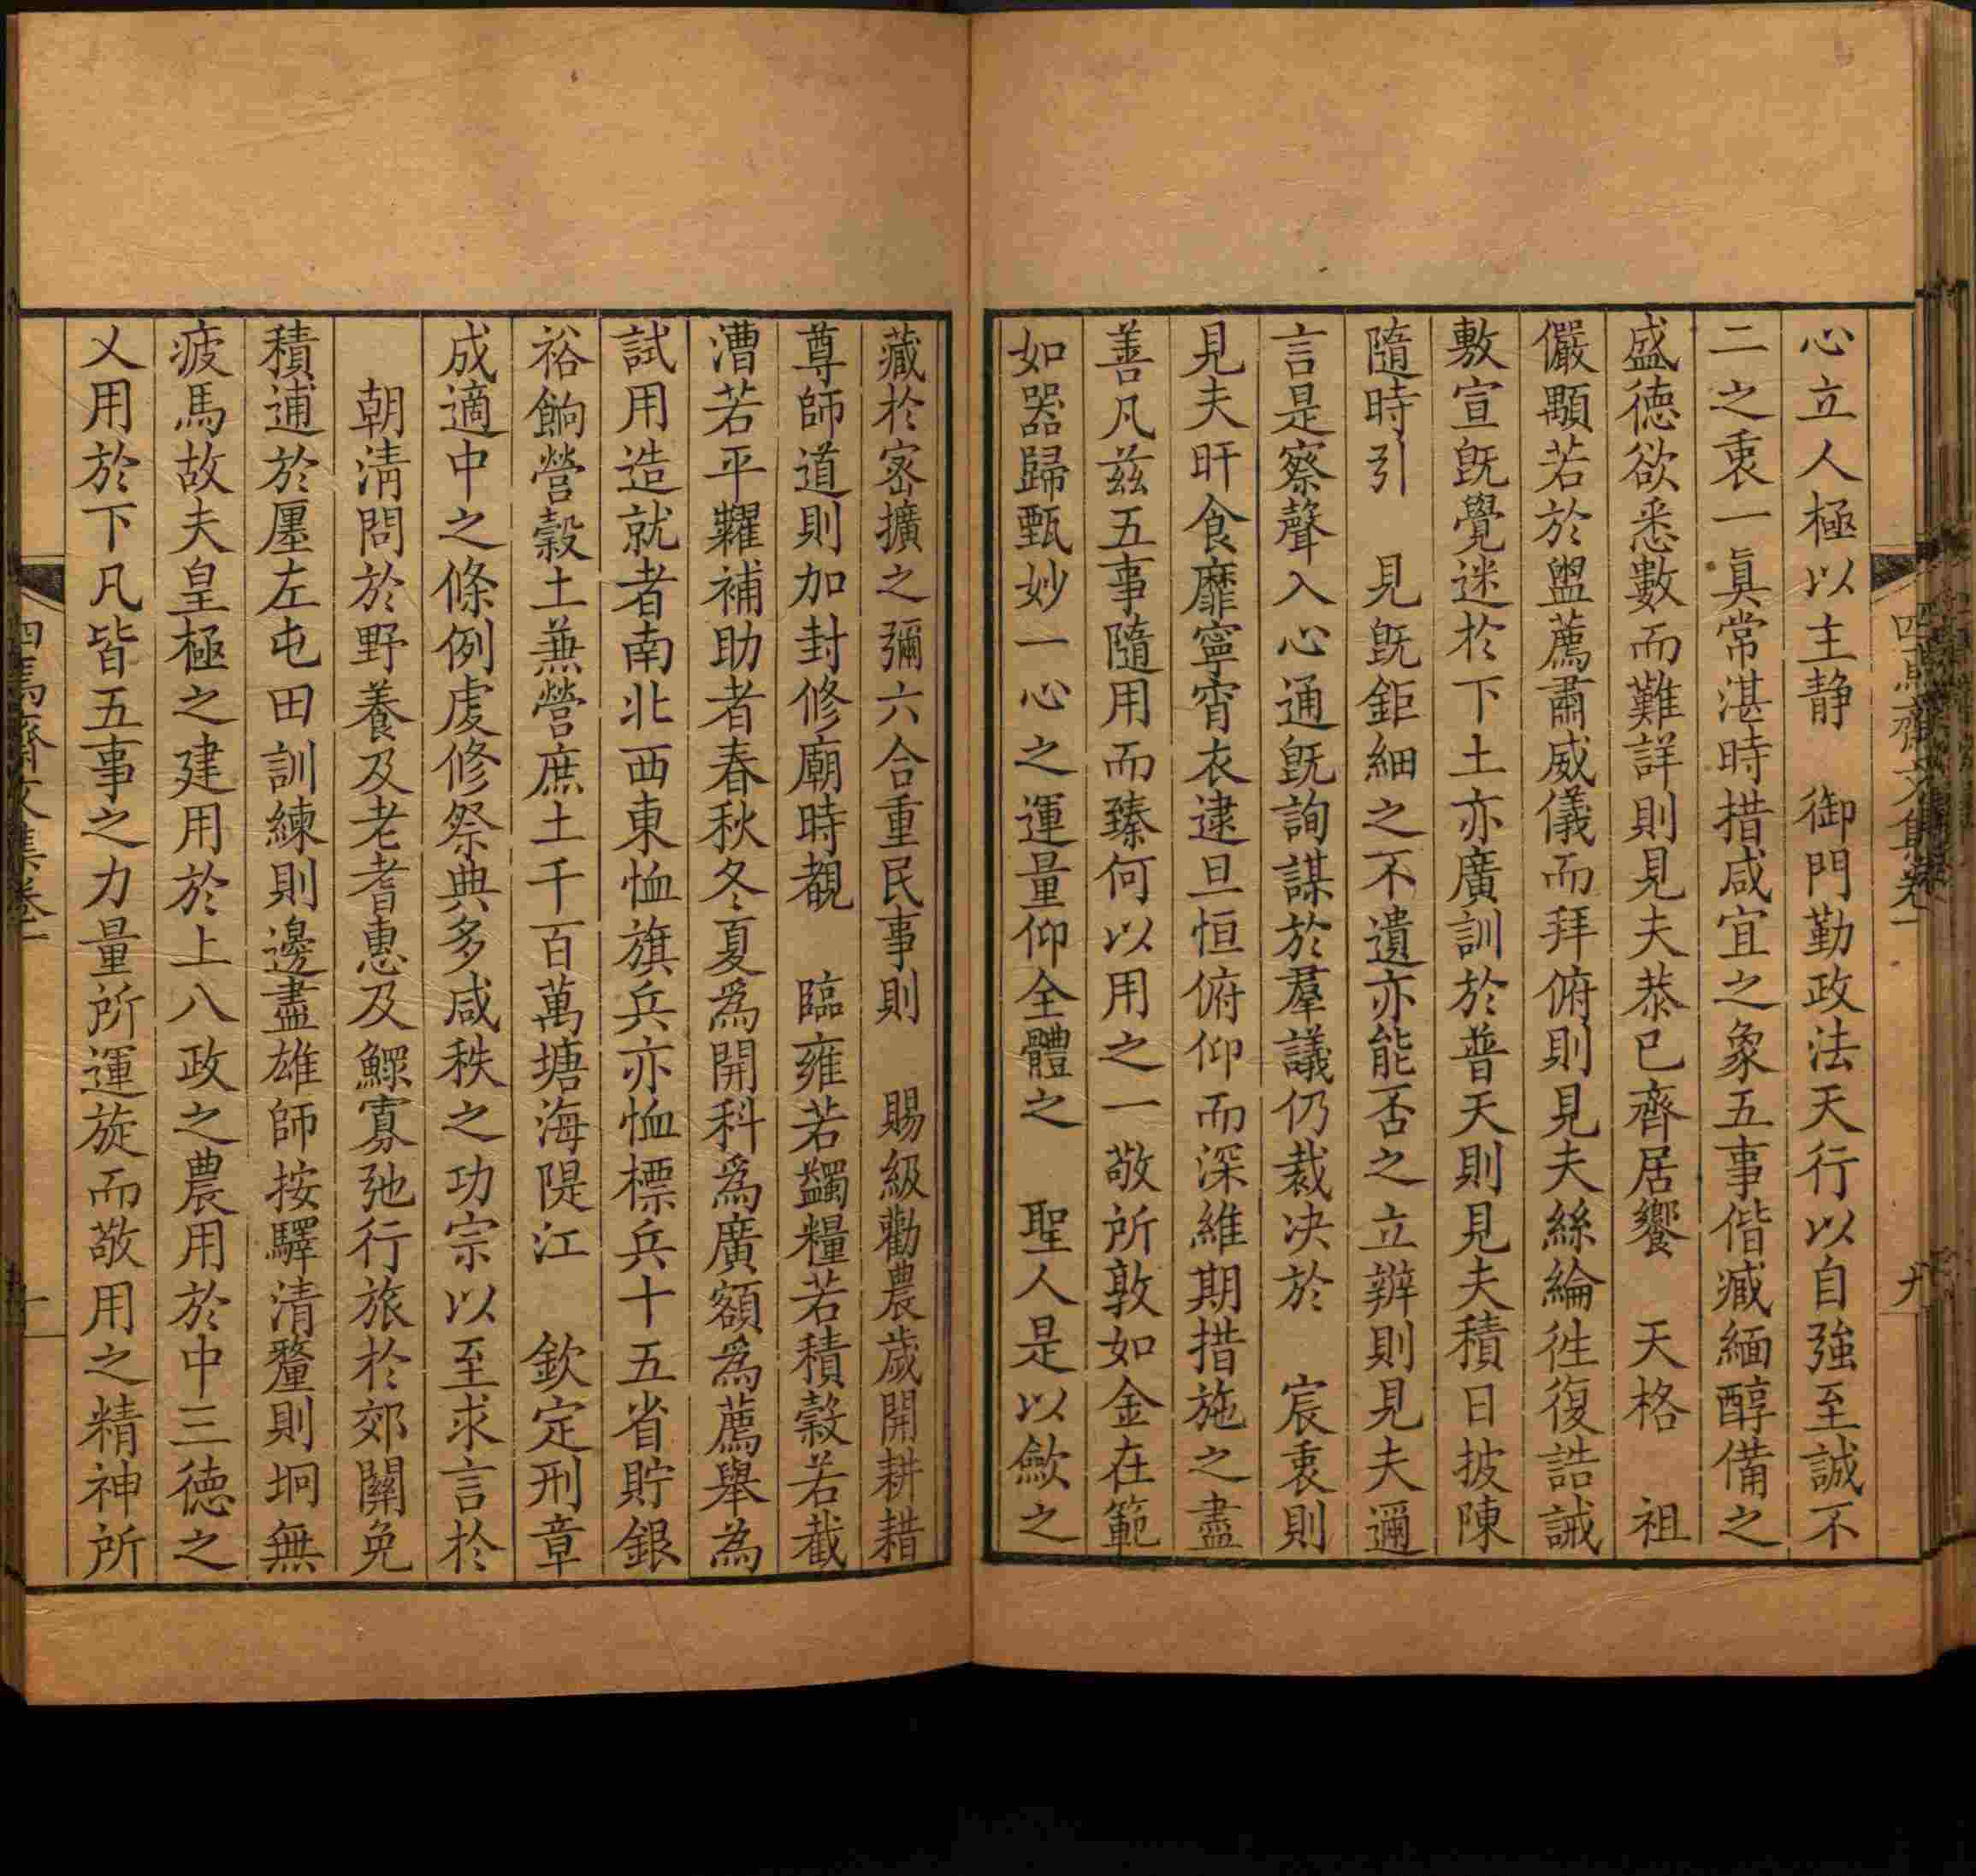 心立人極以主静　御門勤政法天行以自強至誠不
二之衷一眞常湛時措咸宜之象五事偕臧緬醇備之
盛德欲悉數而難詳則見夫恭已齊居饗　天格　祖
儼顒若於盥薦肅威儀而拜俯則見夫絲綸徃復誥誡
敷宣旣覺迷於下土亦廣訓於普天則見夫積日披陳
隨時引　見旣鉅細之不遺亦能否之立辨則見夫邇
言是察聲入心通旣詢謀於羣議仍裁决於　宸衷則
見夫旰食靡寧宵衣逮旦恒俯仰而深維期措施之盡
善凡兹五事隨用而臻何以用之一敬所敦如金在範
如器歸甄妙一心之運量仰全體之　聖人是以歛之
藏於宻擴之彌六合重民事則　賜級勸農歲開耕耤
尊師道則加封修廟時覩　臨雍若蠲糧若積穀若截
漕若平糶補助者春秋冬夏爲開科爲廣額爲薦舉為
試用造就者南北西東恤旗兵亦恤標兵十五省貯銀
裕餉營穀土蕪營庶土千百萬塘海隄江　欽定刑章
成適中之條例虔修祭典多咸秩之功宗以至求言於
朝清問於野養及老耆惠及鰥寡弛行旅於郊關免
積逋於廛左屯田訓練則邊盡雄師按驛清釐則坰無
疲馬故夫皇極之建用於上八政之農用於中三德之
乂用於下凡皆五事之力量所運旋而敬用之精神所
四焉齋文集卷一
九
四焉齋文集卷一